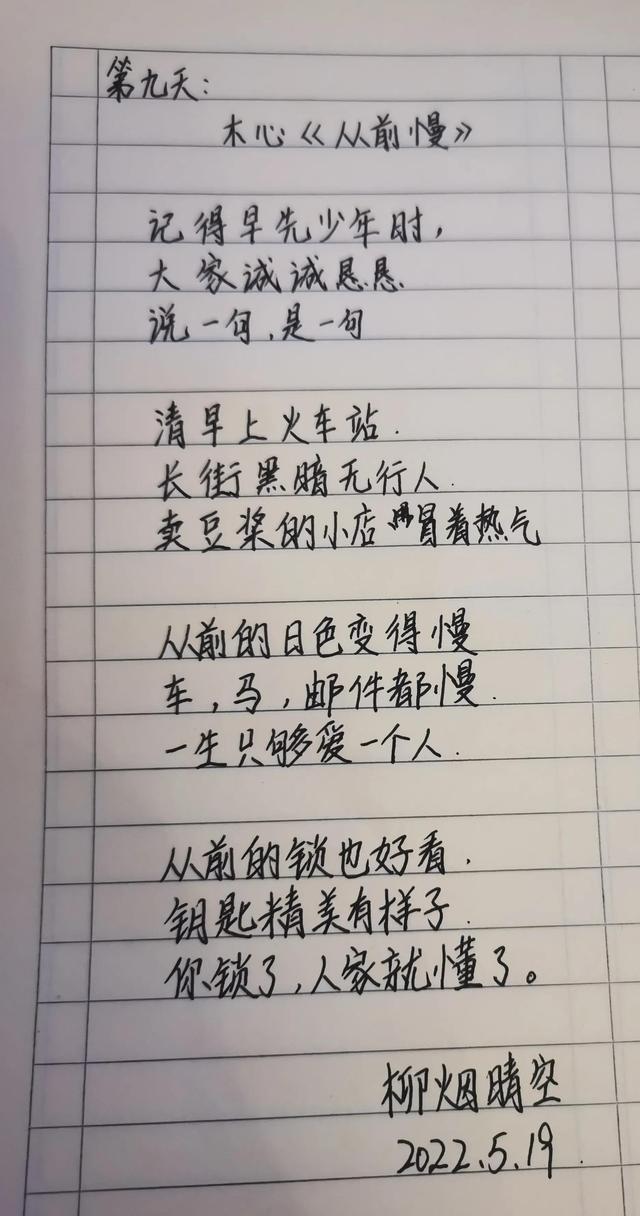 第九天：
木心《从前慢》
记得早先少年时，
大家诚诚恳恳
说一句，是一句
清早上火车站.
长街黑暗无行人.
卖豆浆的小店冒着热气
从前的日色变得慢
车，马，邮件都慢.
一生只够爱一个人.
从前的锁也好看.
钥匙精美有样子.
你锁了，人家就懂了。
柳烟晴空
2022.5.19.